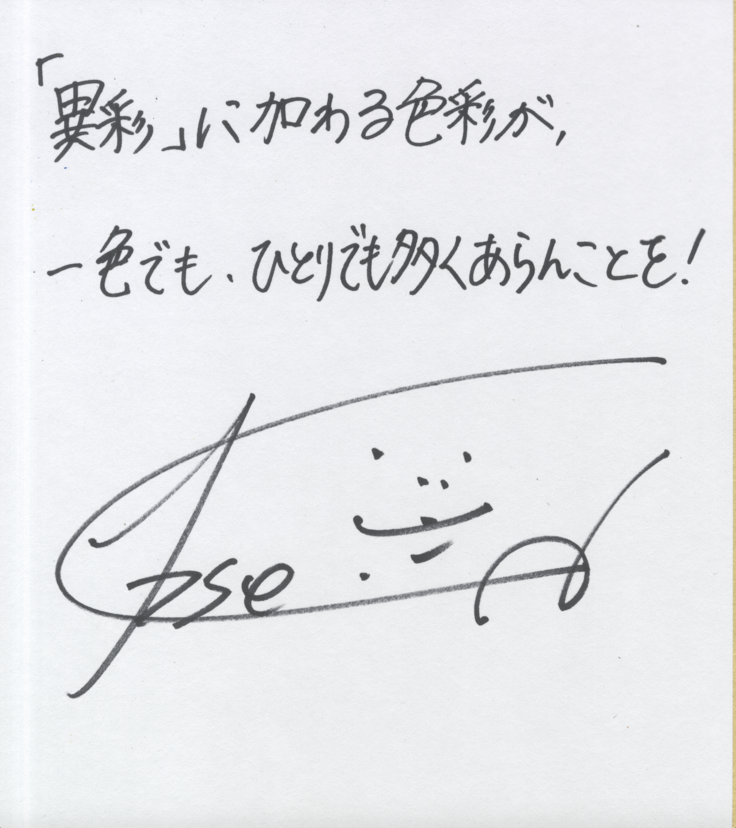 「異彩」に加わる色彩が,
一色でも、ひとりでも多くあらんことを!